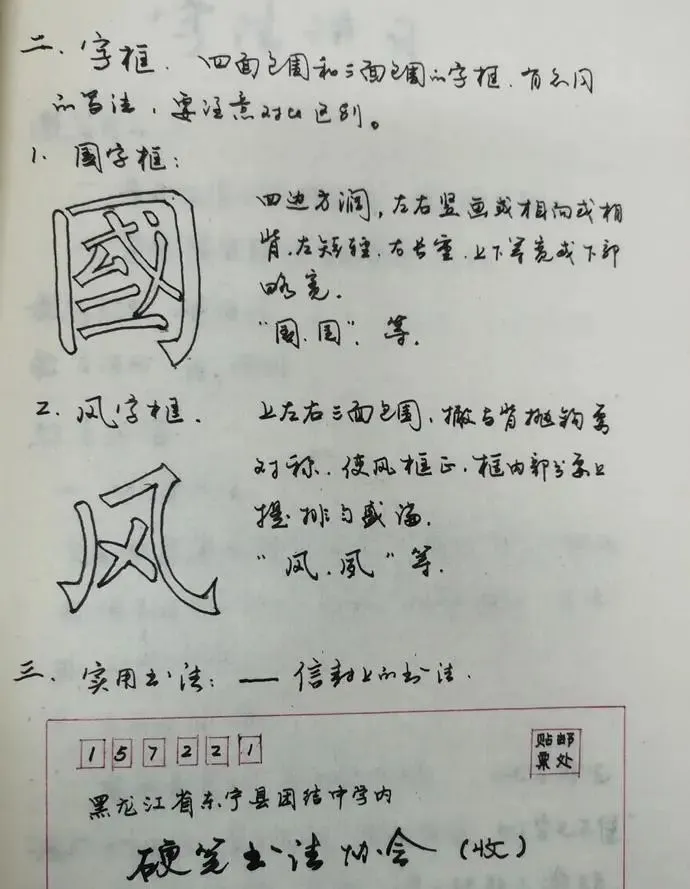 二、字框、四面包围和三面包围的字框,有不同
的写法,要注意对比区别。
1、国字框:
國
四边方润,左右竖画或相向或相
背,左短轻,右长重,上下等宽或下部
略宽.
"国.国".等.
2、风字框.
风
上左右三面包围,撇与背抛钩要
对称.使风框正.框内部分要上
提.排匀盛满.
"风.凤"等.
三、实用书法:——信封上的书法.
157221
贴邮
票处
黑龙江省东宁县团结中学内
硬笔书法协会(收)